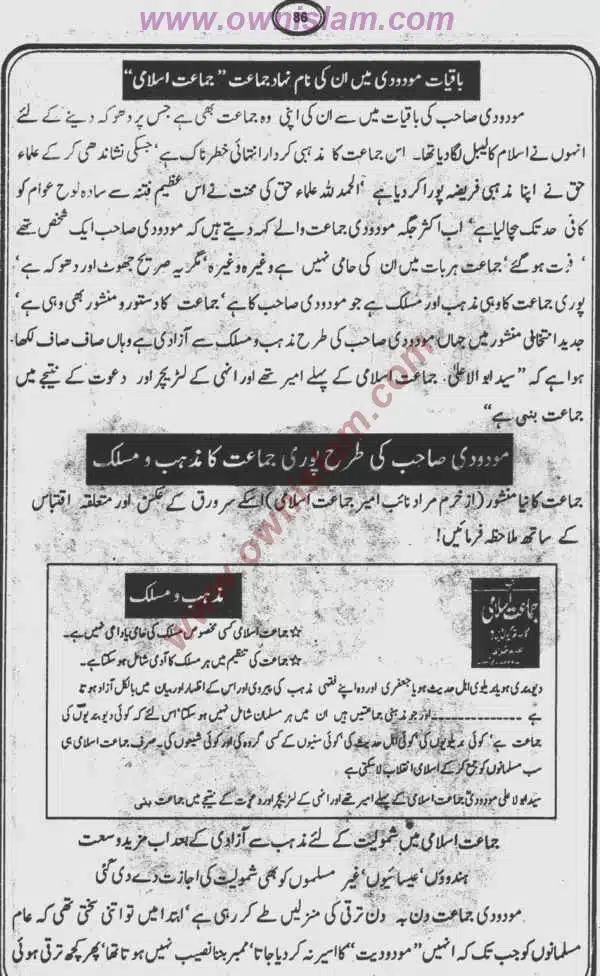 www.ownislam.com
86
باقیات مودودی میں ان کی نام نہاد جماعت "جماعت اسلامی"
مودودی صاحب کی باقیات میں سے ان کی اپنی وہ جماعت بھی ہے جس پر دھوکہ دینے کے لئے
انہوں نے اسلام کا لیبل لگا دیا تھا۔ اس جماعت کا مذہبی کردار انتہائی خطرناک ہے' جسکی نشاندھی کر کے علماء
حق نے اپنا مذہبی فریضہ پورا کر دیا ہے' الحمد للہ علماء حق کی محنت نے اس عظیم فتنہ سے سادہ لوح عوام کو
کافی حد تک بچالیا ہے' اب اکثر جگہ مودودی جماعت والے کہہ دیتے ہیں کہ مودودی صاحب ایک شخص تھے
' فوت ہو گئے' جماعت ہر بات میں ان کی حامی نہیں ہے وغیرہ وغیرہ' مگر یہ صریح جھوٹ اور دھوکہ ہے'
پوری جماعت کا وہی مذہب اور مسلک ہے جو مودودی صاحب کا ہے' جماعت کا دستور و منشور بھی وہی ہے'
جدید انتخابی منشور میں جہاں مودودی صاحب کی طرح مذہب و مسلک سے آزادی ہے وہاں صاف صاف لکھا
ہوا ہے کہ "سید ابو الاعلیٰ جماعت اسلامی کے پہلے امیر تھے اور انہی کے لٹریچر اور دعوت کے نتیجے میں
جماعت بنی ہے"
مودودی صاحب کی طرح پوری جماعت کا مذہب و مسلک
جماعت کا نیا منشور (از خرم مراد نائب امیر جماعت اسلامی) اسکے سرورق کے عکس اور متعلقہ اقتباس
کے ساتھ ملاحظہ فرمائیں!
مذہب و مسلک
جماعت اسلامی
☆ جماعت اسلامی کسی مخصوص مسلک کی حامی یا داعی نہیں ہے۔
☆ جماعت کی تنظیم میں ہر مسلک کا آدمی شامل ہو سکتا ہے۔
دیوبندی ہو یا بریلوی اہل حدیث ہو یا جعفری اور وہ اپنے فقہی مذہب کی پیروی اور اس کے اظہار اور بیان میں بالکل آزاد ہوتا
ہے ۔۔۔۔۔۔۔۔ اور جو مذہبی جماعتیں ہیں ان میں ہر مسلمان شامل نہیں ہو سکتا' اس لئے کہ کوئی دیوبندیوں کی
جماعت ہے' کوئی بریلویوں کی' کوئی اہل حدیث کی' کوئی سنیوں کے کسی گروہ کی اور کوئی شیعوں کی۔ صرف جماعت اسلامی ہی
سب مسلمانوں کو جمع کر کے اسلامی انقلاب لا سکتی ہے
سید ابو لا علی مودودی جماعت اسلامی کے پہلے امیر تھے اور انہی کے لٹریچر اور دعوت کے نتیجے میں جماعت بنی
جماعت اسلامی میں شمولیت کے لئے مذہب سے آزادی کے بعد اب مزید وسعت
ہندوؤں' عیسائیوں' غیر مسلموں کو بھی شمولیت کی اجازت دے دی گئی
مودودی جماعت دن بہ دن ترقی کی منزلیں طے کر رہی ہے' ابتدا میں تو اتنی سختی تھی کہ عام
مسلمانوں کو جب تک کہ انہیں "مودودیت" کا اسیر نہ کر دیا جاتا' ممبر بننا نصیب نہیں ہوتا تھا' پھر کچھ ترقی ہوئی
www.ownislam.com